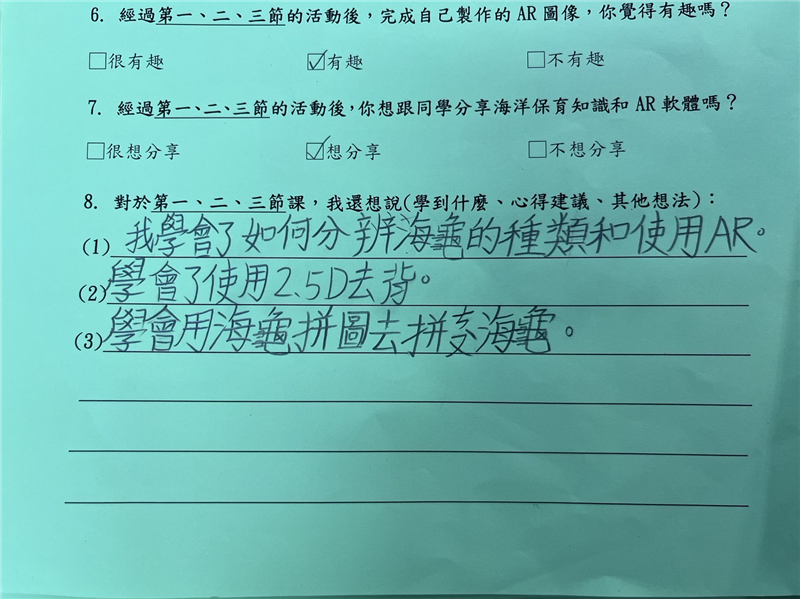 6. 經過第一、二、三節的活動後，完成自己製作的 AR 圖像，你覺得有趣嗎？
□很有趣 ☑有趣 □不有趣
7. 經過第一、二、三節的活動後，你想跟同學分享海洋保育知識和 AR 軟體嗎？
□很想分享 ☑想分享 □不想分享
8. 對於第一、二、三節課，我還想說(學到什麼、心得建議、其他想法)：
(1) 我學會了如何分辨海龜的種類和使用AR。
(2) 學會了使用2.5D去背。
(3) 學會用海龜拼圖去拼海龜。